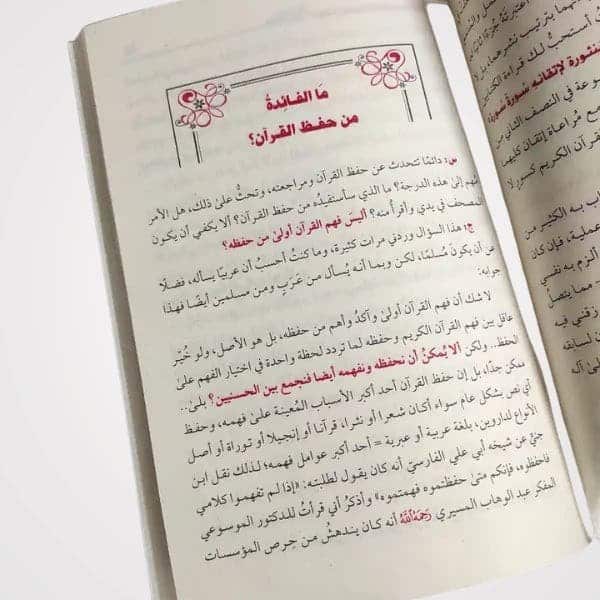 ما الفائدةُ
من حفظ القرآن؟
س: دائمًا نتحدث عن حفظ القرآن ومراجعته، وتحثُّ علىٰ ذلك، هل الأمر
مُهم إلىٰ هذه الدرجة؟ ما الذي سأستفيدُه من حفظ القرآن؟ ألا يكفي أن يكون
المصحف في يدي وأقرأ منه؟ أليسَ فهم القرآن أولىٰ من حفظه؟
ج: هذا السؤال وردني مرات كثيرة، وما كنتُ أحسبُ أن عربيًا يسأله، فضلًا
عن أن يكونَ مُسلمًا، لكن وبما أنه يُسأل من عَرَبٍ ومن مسلمين أيضًا فهذا
جوابه:
لا شك أن فهم القرآن أولىٰ وآكدُ وأهم من حفظه، بل هو الأصل، ولو خُيِّر
عاقل بين فهم القرآن الكريم وحفظه لما تردد لحظة واحدة في اختيار الفهم علىٰ
الحفظ.. ولكن ألا يُمكنُ أن نحفظه ونفهمه أيضا فنجمع بين الحسنيين؟ بلىٰ..
ممكن جدًا، بل إن حفظ القرآن أحد أكبر الأسباب المُعينة علىٰ فهمه، وحفظ
أي نص بشكل عام سواء أكان شعرا أو نثرا، قرآنا أو إنجيلا أو توراة أو أصل
الأنواع لداروين، بلغة عربية أو عبرية = أحد أكبر عوامل فهمه؛ لذلك نقل ابن
جنيٍّ عن شيخه أبي علي الفارسيّ أنه كان يقول لطلبته: «إذا لم تفهموا كلامي
فاحفظوه، فإنكم متىٰ حفظتموه فهمتموه» وأذكرُ أني قرأتُ للدكتور الموسوعي
المفكر عبد الوهاب المسيري رَحِمَهُ اللَّهُ أنه كان يندهشُ من حِرص المؤسسات